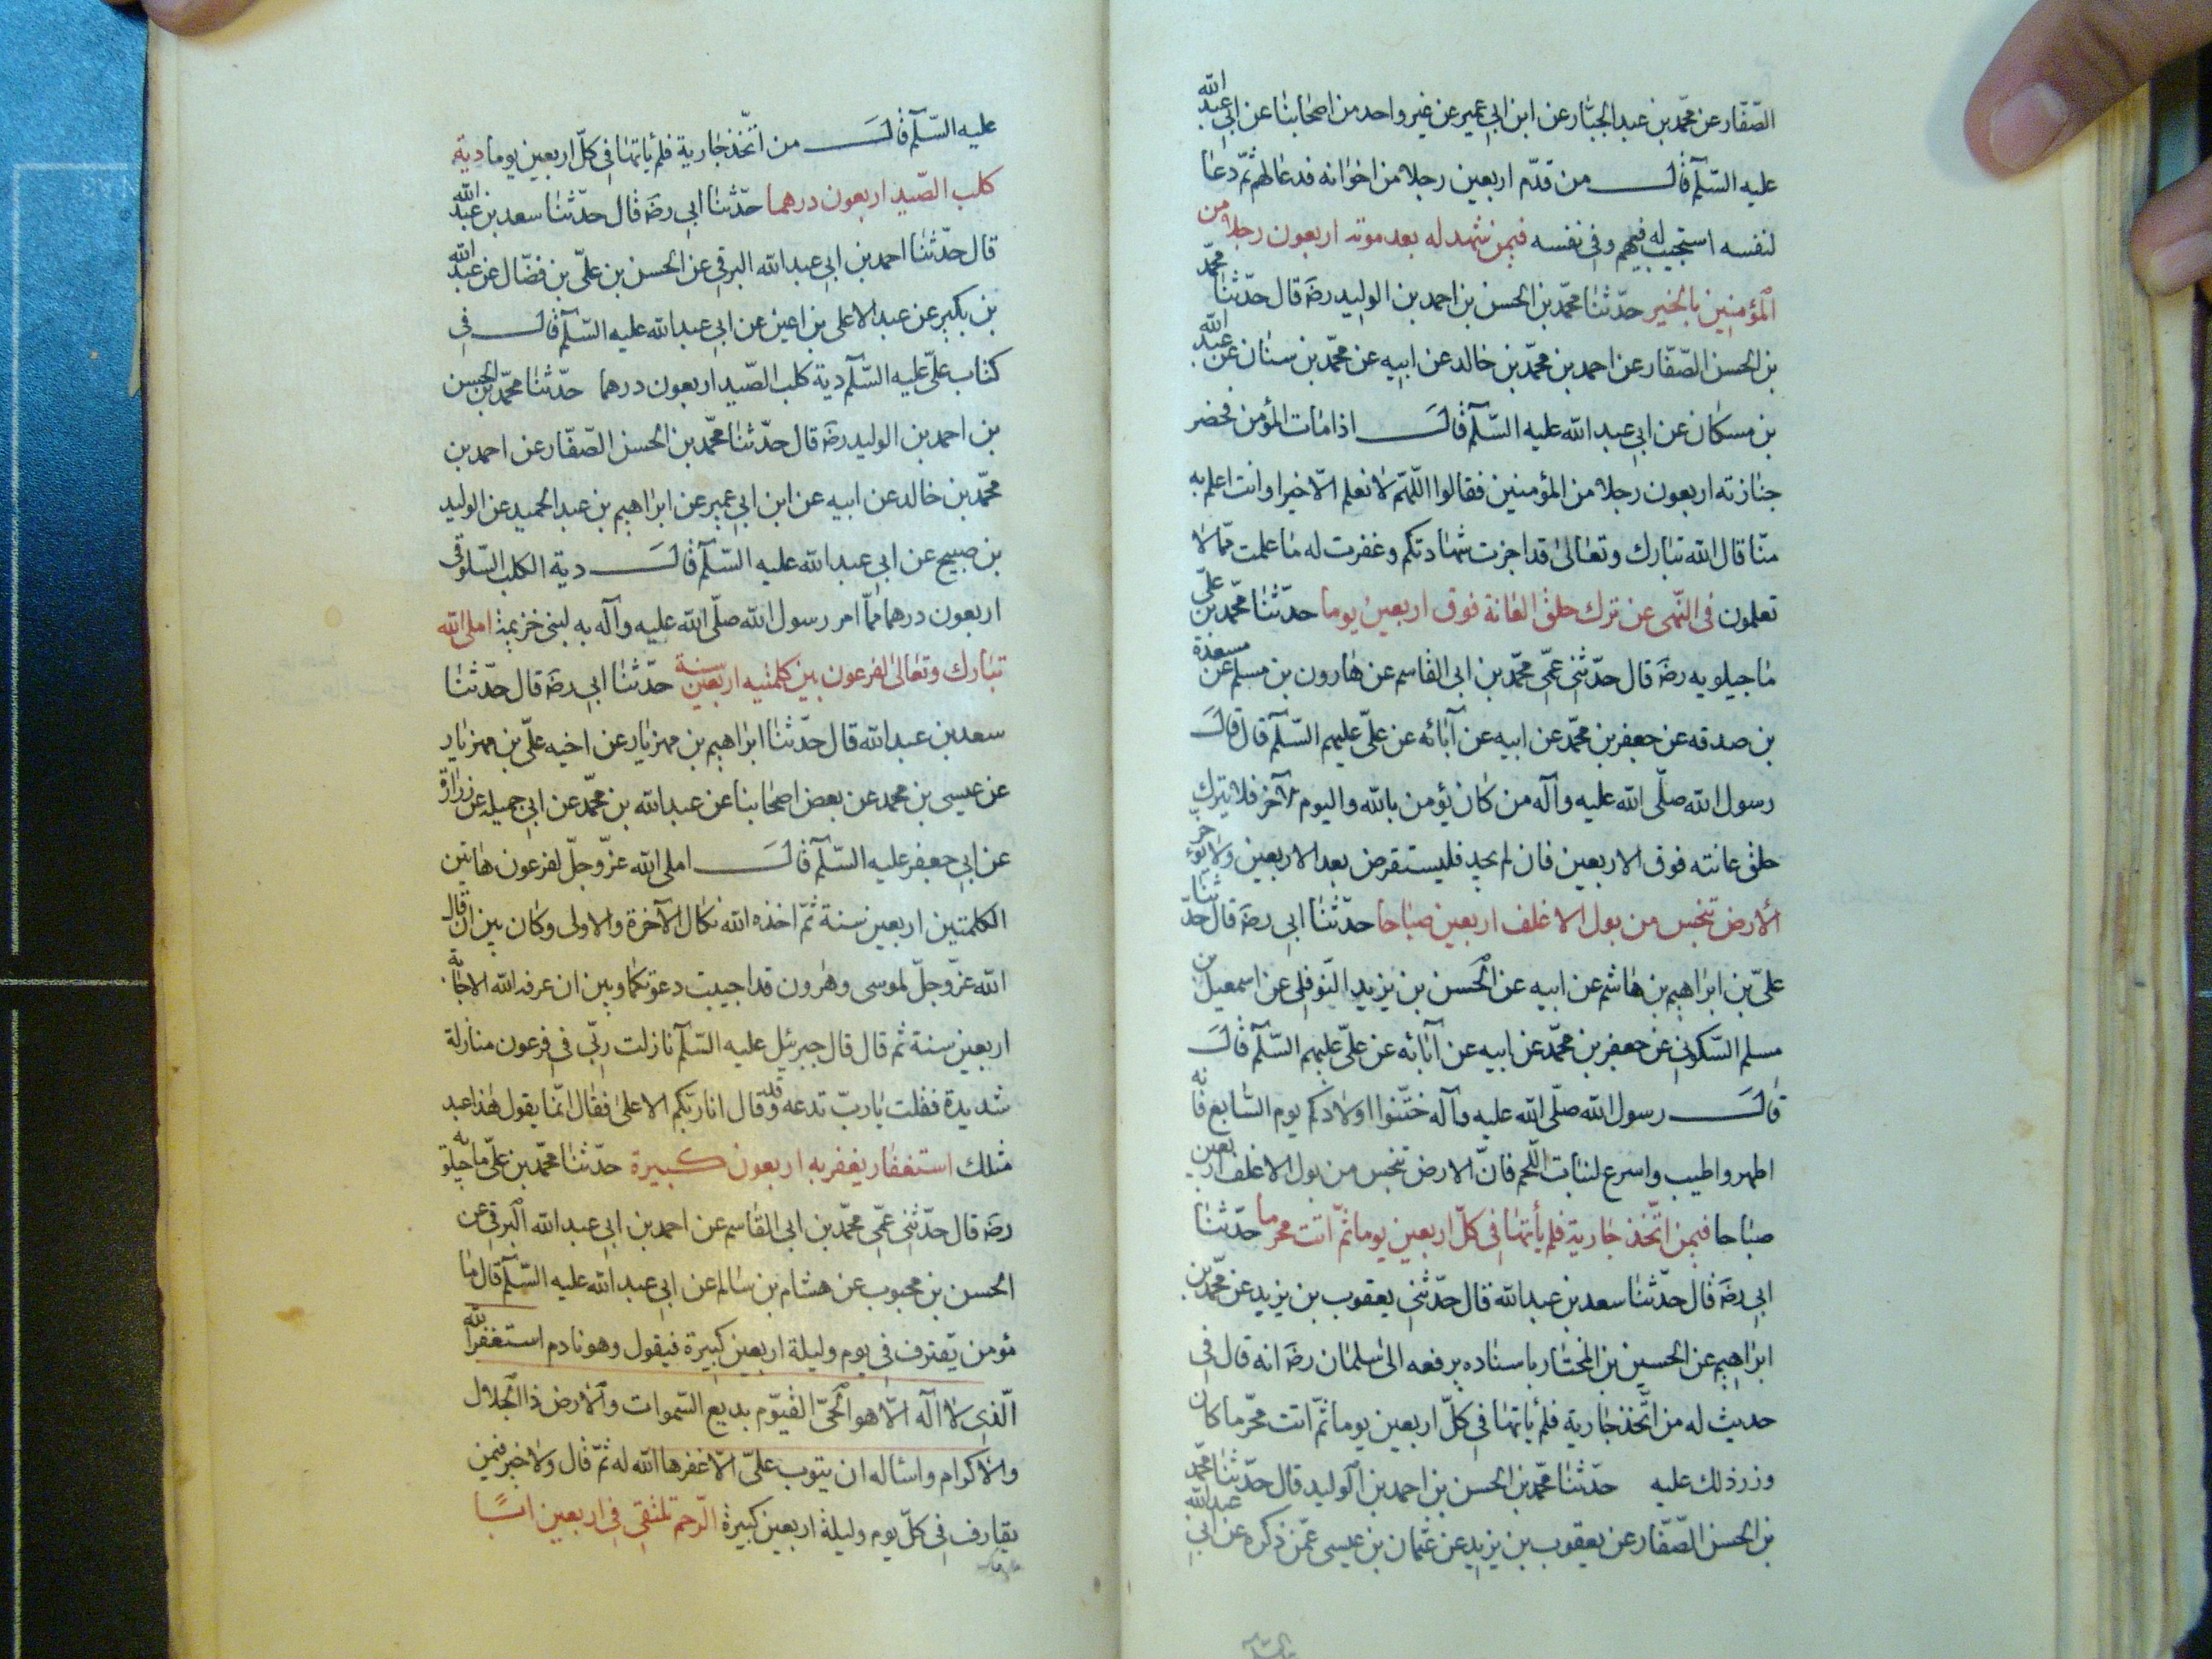 الصّفّار عن محمّد بن عبد الجبّار عن ابن ابي عمير عن غير واحد من اصحابنا عن ابي عبد الله
عليه السّلام قال من قدّم اربعين رجلا من اخوانه فدعا لهم ثمّ دعا
لنفسه استجيب له فيهم وفي نفسه فيمن شهد له بعد موته اربعون رجلا من
المؤمنين بالخير حدّثنا محمّد بن الحسن بن احمد بن الوليد رضه قال حدّثنا محمّد
بن الحسن الصّفّار عن احمد بن محمّد بن خالد عن ابيه عن محمّد بن سنان عن عبد الله
بن مسكان عن ابي عبد الله عليه السّلام قال اذا مات المؤمن فحضر
جنازته اربعون رجلا من المؤمنين فقالوا اللّهمّ لا نعلم الّا خيرا وانت اعلم به
منّا قال الله تبارك وتعالى قد اجزت شهادتكم وغفرت له ما علمت ممّا لا
تعلمون في النّهى عن ترك حلق العانة فوق اربعين يوما حدّثنا محمّد بن علىّ
ماجيلويه رضه قال حدّثنى عمّى محمّد بن ابى القاسم عن هارون بن مسلم عن مسعدة
بن صدقه عن جعفر بن محمّد عن ابيه عن آبائه عن علىّ عليهم السّلام قال قال
رسول الله صلّى الله عليه وآله من كان يؤمن بالله واليوم الآخر فلا يترك
حلق عانته فوق الاربعين فان لم يجد فليستقرض بعد الاربعين ولا يؤخر
الأرض تنجس من بول الاغلف اربعين صباحا حدّثنا ابى رضه قال حدّثنا
علىّ بن ابراهيم بن هاشم عن ابيه عن الحسن بن يزيد النّوفلى عن اسمعيل بن
مسلم السّكونى عن جعفر بن محمّد عن ابيه عن آبائه عن علىّ عليهم السّلام قال
قال رسول الله صلّى الله عليه وآله ختّنوا اولادكم يوم السّابع فانّه
اطهر واطيب واسرع لنبات اللّحم فانّ الارض تنجس من بول الاغلف اربعين
صباحا فيمن اتّخذ جارية فلم يأتها في كلّ اربعين يوما ثمّ اتت محرما حدّثنا
ابى رضه قال حدّثنا سعد بن عبد الله قال حدّثنى يعقوب بن يزيد عن محمّد بن
ابراهيم عن الحسين بن المختار باسناده يرفعه الى سلمان رضه انه قال فى
حديث له من اتّخذ جارية فلم يأتها في كلّ اربعين يوما ثمّ اتت محرّما كان
وزر ذلك عليه حدّثنا محمّد بن الحسن بن احمد بن الوليد قال حدّثنا محمّد
بن الحسن الصّفّار عن يعقوب بن يزيد عن عثمان بن عيسى عمّن ذكره عن ابى عبد الله
عليه السّلام قال من اتّخذ جارية فلم يأتها في كلّ اربعين يوما دية
كلب الصّيد اربعون درهما حدّثنا ابى رضه قال حدّثنا سعد بن عبد الله
قال حدّثنا احمد بن ابى عبد الله البرقى عن الحسن بن علىّ بن فضّال عن عبد الله
بن بكير عن عبد الاعلى بن اعين عن ابى عبد الله عليه السّلام قال فى
كتاب علىّ عليه السّلام دية كلب الصّيد اربعون درهما حدّثنا محمّد بن الحسن
بن احمد بن الوليد رضه قال حدّثنا محمّد بن الحسن الصّفّار عن احمد بن
محمّد بن خالد عن ابيه عن ابن ابى عمير عن ابراهيم بن عبد الحميد عن الوليد
بن صبيح عن ابى عبد الله عليه السّلام قال دية الكلب السّلوقى
اربعون درهما ممّا امر رسول الله صلّى الله عليه وآله به لبنى خزيمة املى الله
تبارك وتعالى لفرعون بين كلمتيه اربعين سنة حدّثنا ابى رضه قال حدّثنا
سعد بن عبد الله قال حدّثنا ابراهيم بن مهزيار عن اخيه علىّ بن مهزيار
عن عيسى بن محمد عن بعض اصحابنا عن عبد الله بن محمّد عن ابى جميله عن زرارة
عن ابى جعفر عليه السّلام قال املى الله عزّ وجلّ لفرعون هاتين
الكلمتين اربعين سنة ثمّ اخذه الله نكال الآخرة والاولى وكان بين ان قال
الله عزّ وجلّ لموسى وهرون قد اجيبت دعوتكما وبين ان عرفه الله الاجابة
اربعين سنة ثم قال قال جبرئيل عليه السّلام نازلت ربّى في فرعون منازلة
شديدة فقلت يا ربّ تدعه وقد قال انا ربّكم الاعلى فقال انّما يقول هذا عبد
مثلك استغفار يغفر به اربعون كبيرة حدّثنا محمّد بن علىّ ماجيلويه
رضه قال حدّثنى عمّى محمّد بن ابى القاسم عن احمد بن ابى عبد الله البرقى عن
الحسن بن محبوب عن هشام بن سالم عن ابى عبد الله عليه السّلام قال ما
مؤمن يقترف في يوم وليلة اربعين كبيرة فيقول وهو نادم استغفر الله
الّذى لا اله الّا هو الحىّ القيّوم بديع السّموات والارض ذا الجلال
والاكرام واسأله ان يتوب علىّ الّا غفرها الله له ثمّ قال ولا خير فيمن
يقارف في كلّ يوم وليلة اربعين كبيرة الرّحم تلتقى في اربعين ابًا